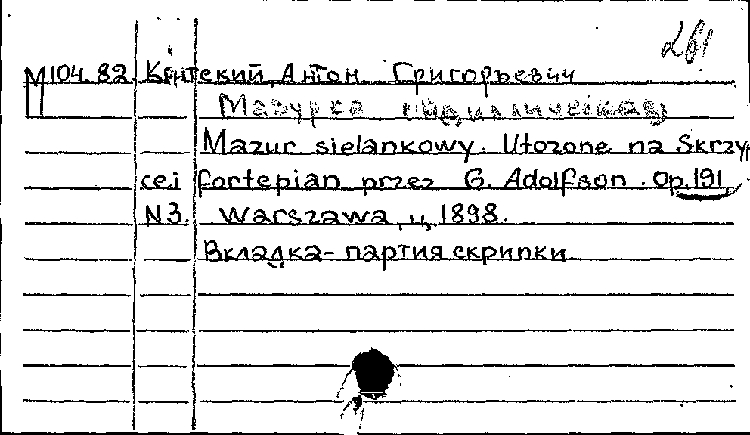 261
М104.82. Контский, Антон Григорьевич
Мазурка (идиллическая)
Mazur sielankowy. Utozone na Skrzyp
cei fortepian przez G. Adolfson. Op.191,
N3. Warszawa, ц, 1898.
Вкладка-партия скрипки